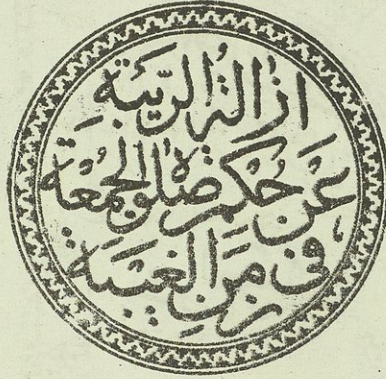 ازالة الرّيبَةِ
عَن حُكمِ صَلٰوةِ الجُمعَةِ
فى زَمَنِ الغَيبَةِ